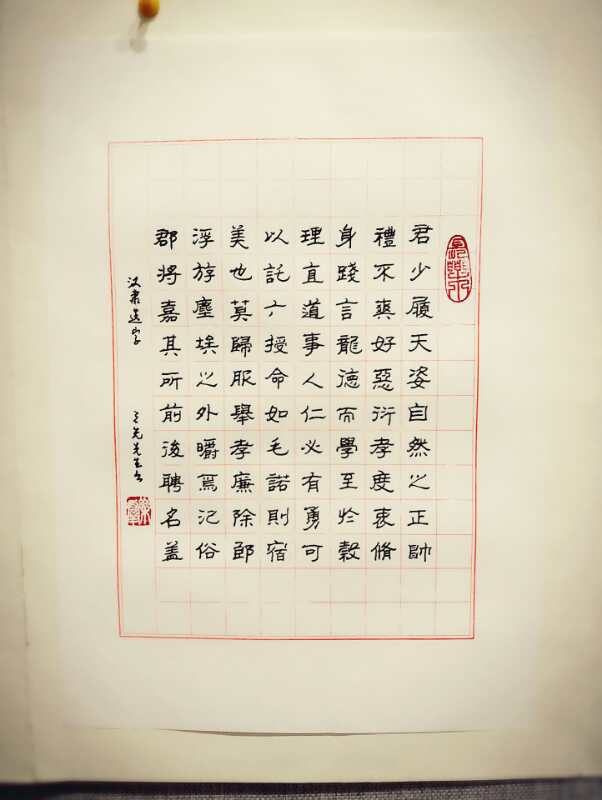 君少履天姿自然之正帥
禮不爽好惡衍孝度衷脩
身踐言龍德而學至於穀
理直道事人仁必有勇可
以託六授命如毛諾則宿
美也莫歸服舉孝廉除郎
浮游塵埃之外皭焉氾俗
郡將嘉其所前後聘名盖
汉隶选字
先生